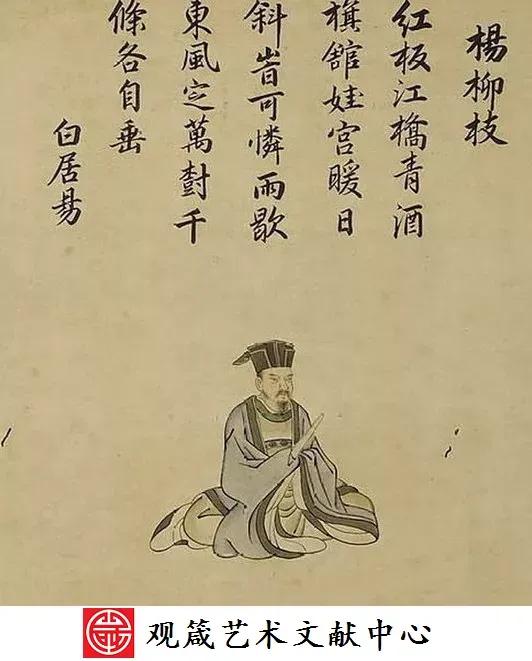 楊柳枝
紅板江橋青酒
旗舘娃宮暖日
斜峕可憐雨歇
東風定萬樹千
條各自垂
白居易
观箴艺术文献中心